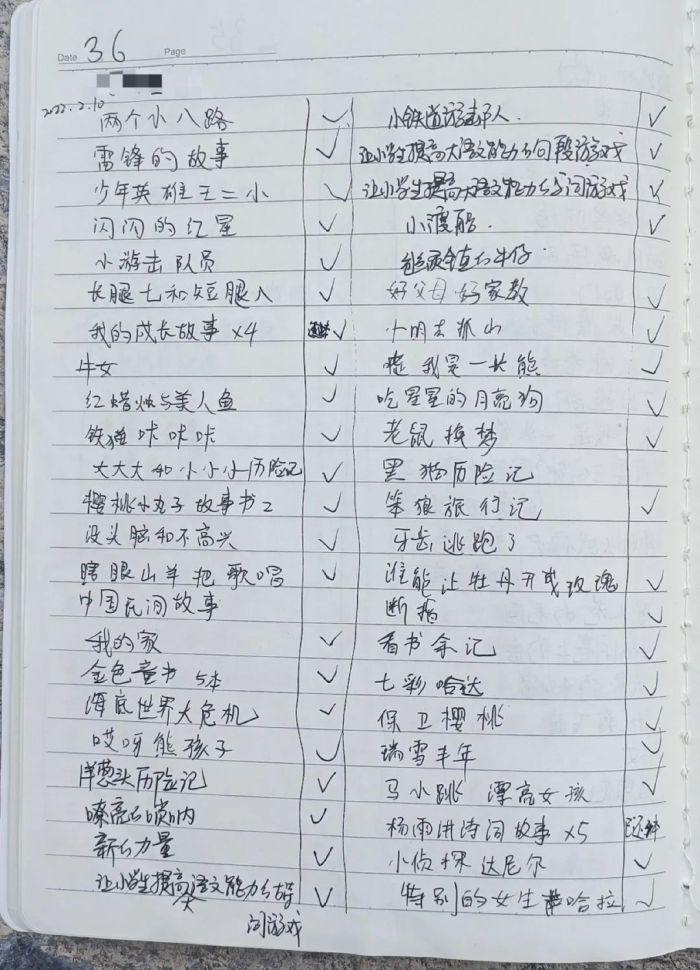 Date 36 Page
2022.2.10
两个小八路 ✓
雷锋的故事 ✓
少年英雄王二小 ✓
闪闪的红星 ✓
小游击队员 ✓
长腿七和短腿八 ✓
我的成长故事 ×4 ✓
牛女 ✓
红蜡烛与美人鱼 ✓
铁猫咔咔咔 ✓
大大大和小小小历险记 ✓
樱桃小丸子故事书2 ✓
没头脑和不高兴 ✓
瞎眼山羊把歌唱 ✓
中国民间故事
我的家 ✓
金色童书 5本 ✓
海底世界大危机 ✓
哎呀熊孩子 ✓
洋葱头历险记 ✓
嘹亮的唢呐 ✓
新的力量 ✓
让小学生提高语文能力的 ✓
词游戏
小铁道游击队. ✓
让小学生提高大语文能力的句段游戏 ✓
让小学生提高大语文能力的词游戏 ✓
小渡船. ✓
牛仔.
好父母好家教 ✓
小明去孤山 ✓
我是一长熊 ✓
吃星星的月亮狗 ✓
老鼠换梦 ✓
黑猫历险记
笨狼旅行记 ✓
牙齿逃跑了
谁能让牡丹开成玫瑰 ✓
断指 ✓
看书余记 ✓
七彩哈达 ✓
保卫樱桃 ✓
瑞雪丰年 ✓
马小跳 漂亮女孩 ✓
杨雨讲诗词故事 ×5
小侦探达尼尔 ✓
特别的女生萨哈拉 ✓